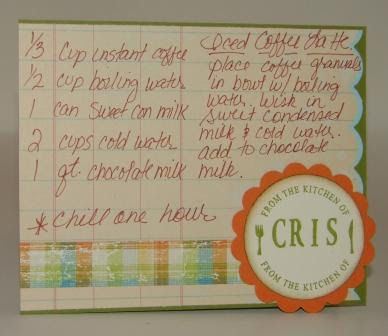 Iced Coffee Latte
1/3 cup instant coffee
1/2 cup boiling water
1 can sweet con milk
2 cups cold water
1 qt. chocolate milk
* Chill one hour
place coffee granuals
in bowl w/ boiling
water. Wisk in
sweet condensed
milk & cold water.
add to chocolate
milk.
FROM THE KITCHEN OF
CRIS
FROM THE KITCHEN OF